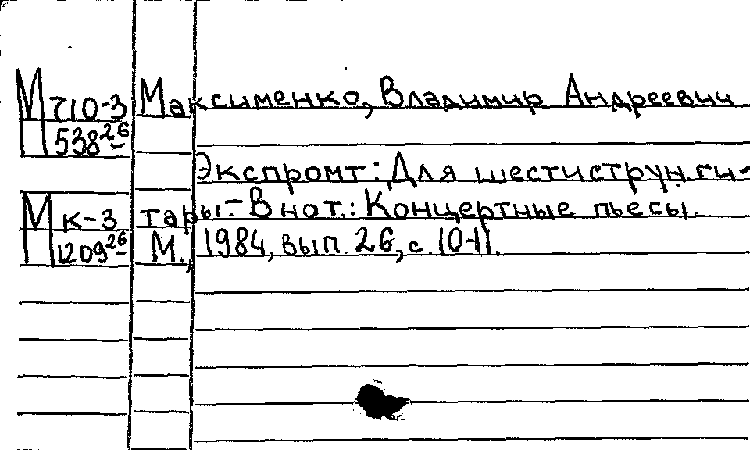 М 710-3 Максименко, Владимир Андреевич
М 538 26
Экспромт: Для шестиструн. ги-
М к-3 тары.- В нот.: Концертные пьесы.
М 1209 26 М., 1984, вып. 26, с. 10-11.